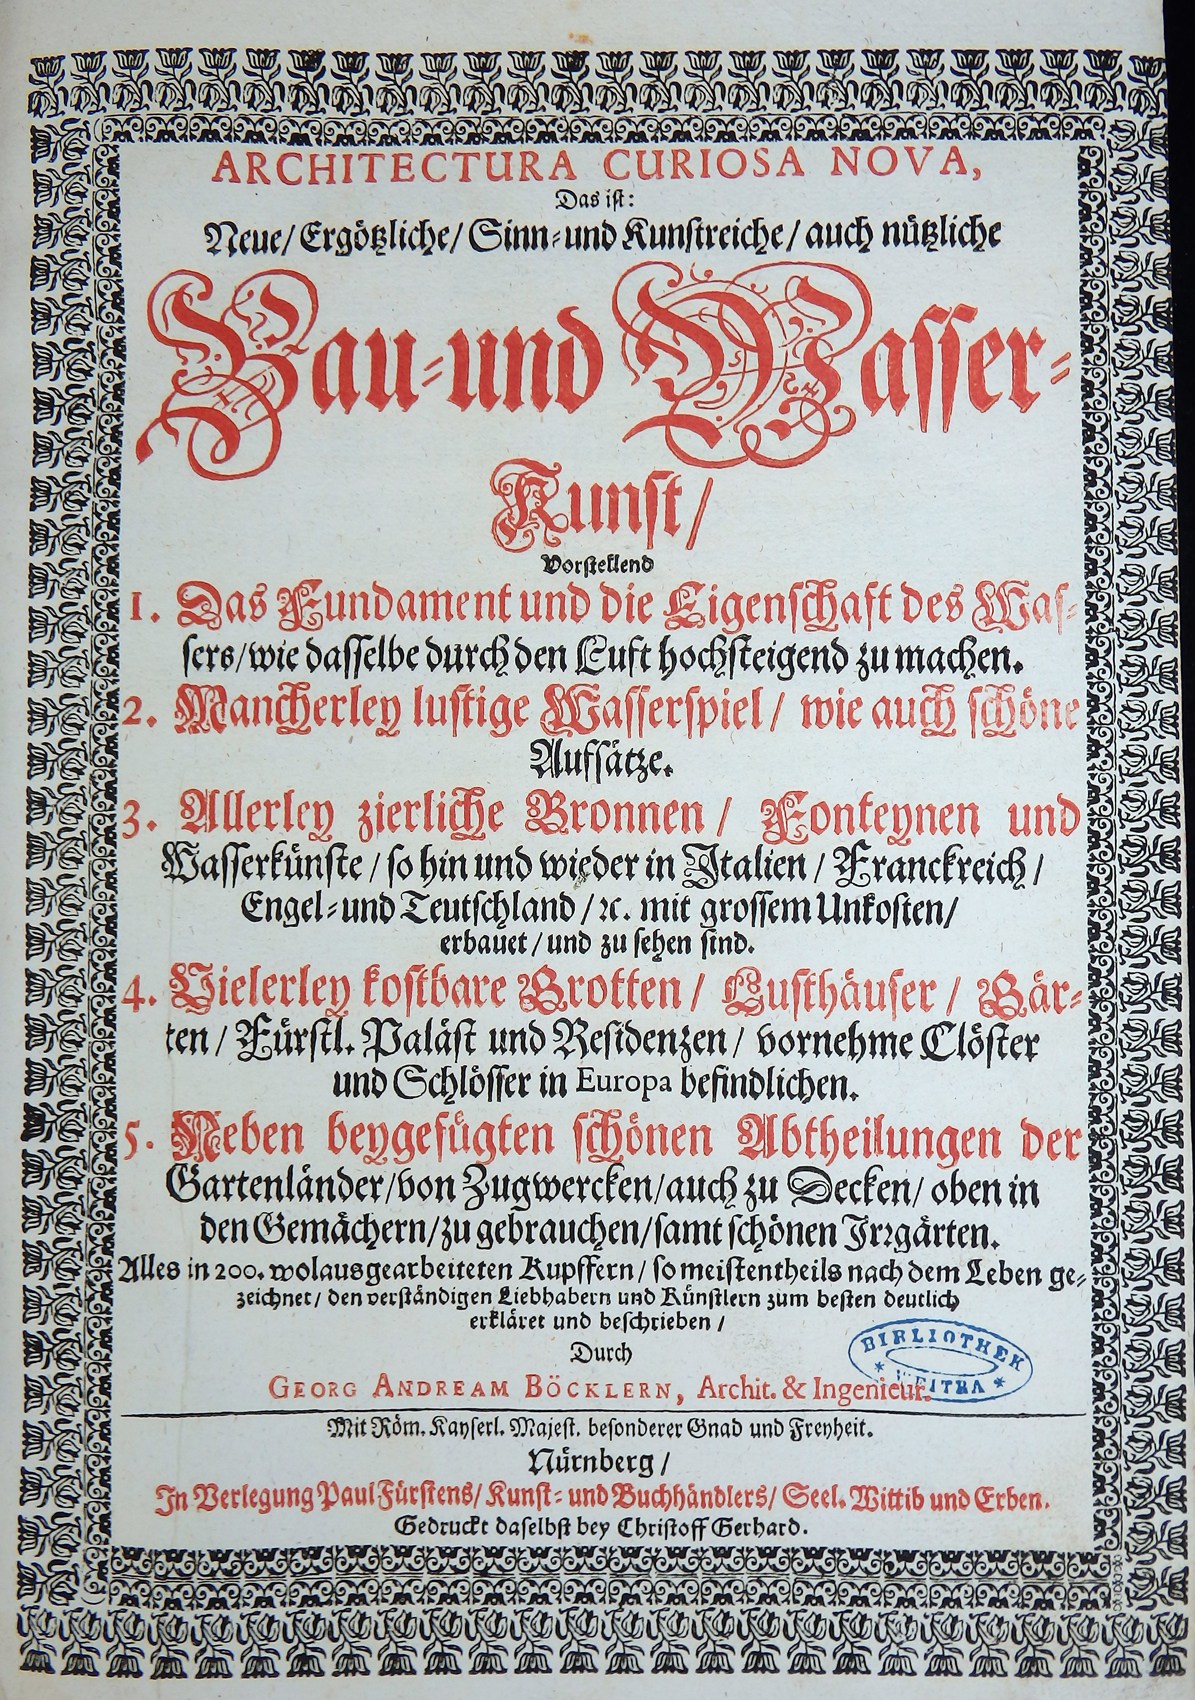 ARCHITECTURA CURIOSA NOVA,
Das ist:
Neue/ Ergötzliche/ Sinn-und Kunstreiche/ auch nützliche
Bau-und Wasser-
Kunst/
Vorstellend
1. Das Fundament und die Eigenschaft des Was-
sers/wie dasselbe durch den Luft hochsteigend zu machen.
2. Mancherley lustige Wasserspiel/ wie auch schöne
Aufsätze.
3. Allerley zierliche Bronnen/ Fonteynen und
Wasserkünste/so hin und wieder in Italien/ Franckreich/
Engel-und Teutschland/ꝛc. mit grossem Unkosten/
erbauet/und zu sehen sind.
4. Vielerley kostbare Grotten/ Lusthäuser/ Gär-
ten/ Fürstl. Paläst und Residenzen/ vornehme Clöster
und Schlösser in Europa befindlichen.
5. Neben beygefügten schönen Abtheilungen der
Gartenländer/von Zugwercken/auch zu Decken/ oben in
den Gemächern/zu gebrauchen/samt schönen Irrgärten.
Alles in 200. wolausgearbeiteten Kupffern/ so meistentheils nach dem Leben ge-
zeichnet/ den verständigen Liebhabern und Künstlern zum besten deutlich
erkläret und beschrieben/
Durch
GEORG ANDREAM BÖCKLERN, Archit. & Ingenieur.
BIBLIOTHEK
* WEITRA *
Mit Röm. Kayserl. Majest. besonderer Gnad und Freyheit.
Nürnberg/
In Verlegung Paul Fürstens/ Kunst- und Buchhändlers/ Seel. Wittib und Erben.
Gedruckt daselbst bey Christoff Gerhard.